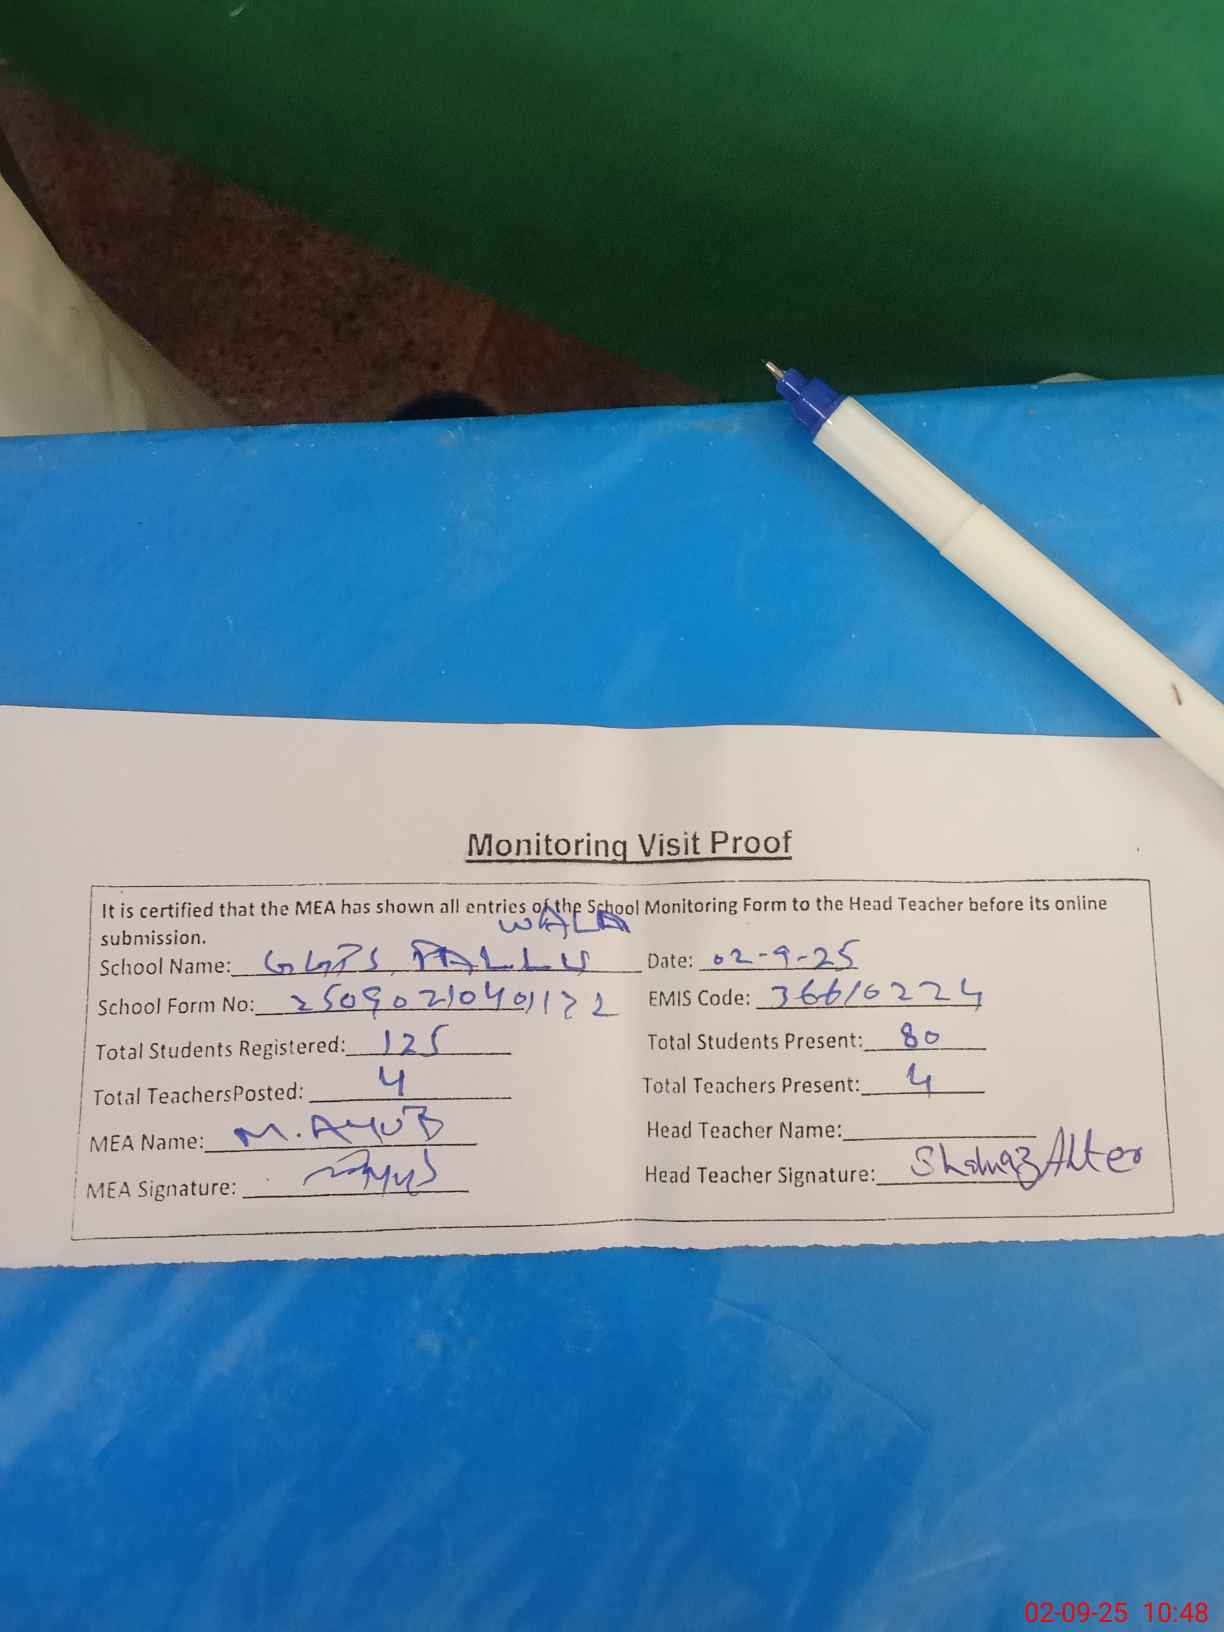 Monitoring Visit Proof
It is certified that the MEA has shown all entries of the School Monitoring Form to the Head Teacher before its online
submission.
School Name: GGPS PALLU WALA Date: 02-9-25
School Form No: EMIS Code: 36610224
Total Students Registered: 125 Total Students Present: 80
Total TeachersPosted: 4 Total Teachers Present: 4
MEA Name: M. AYUB Head Teacher Name:
MEA Signature: Head Teacher Signature: Shahnaz Akhter
02-09-25 10:48